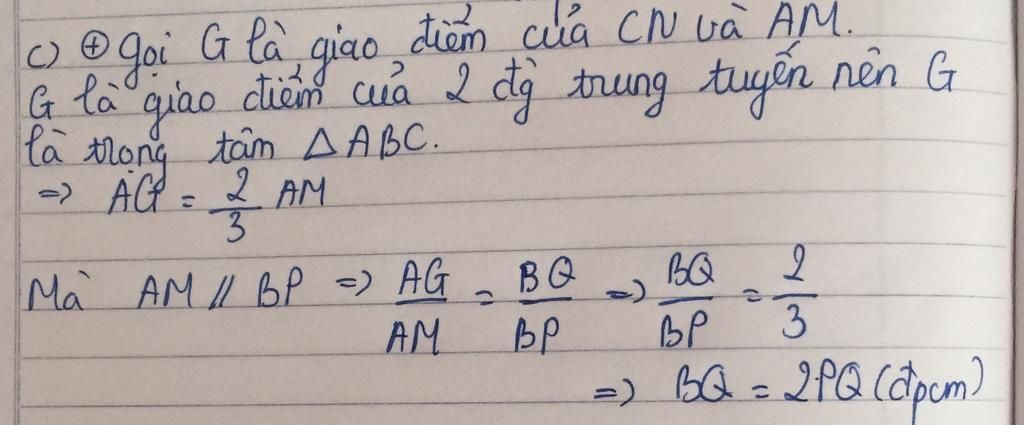 c) ⊕ gọi G là giao điểm của CN và AM.
G là giao điểm của 2 đg trung tuyến nên G
là trọng tâm △ABC.
=> AG = 2/3 AM
Mà AM // BP => AG/AM = BQ/BP => BQ/BP = 2/3
=> BQ = 2PQ (đpcm)